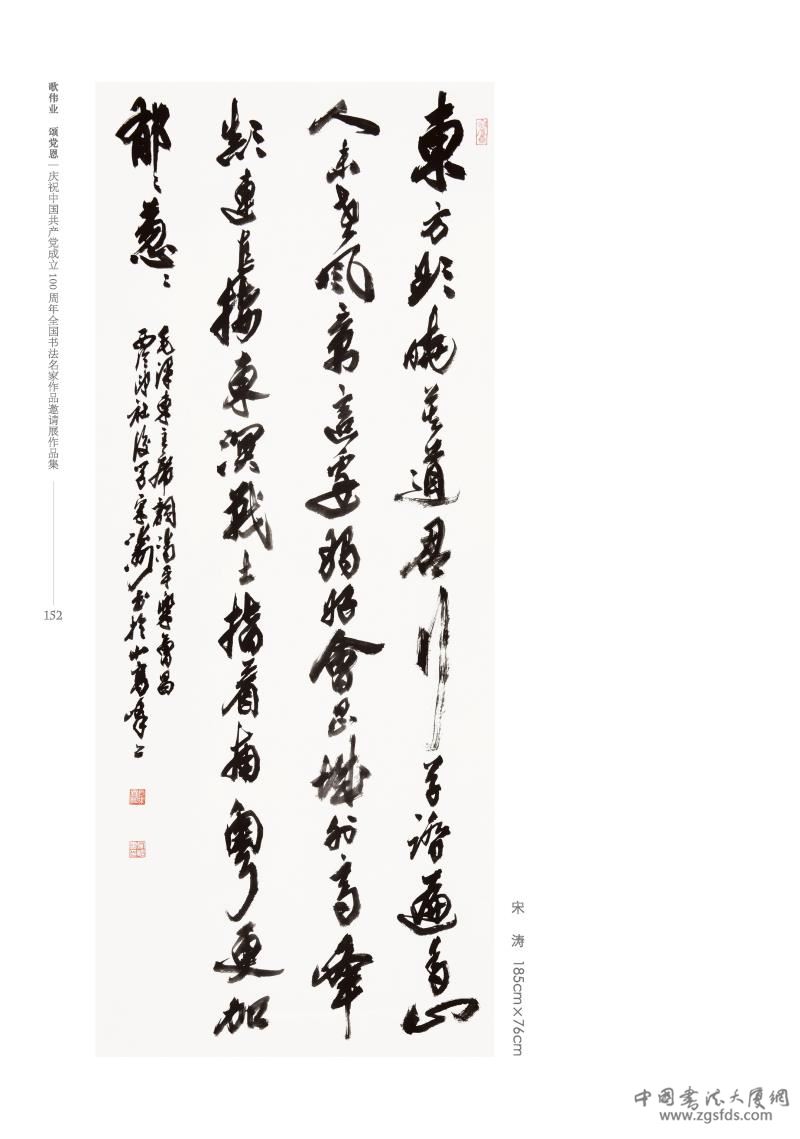 歌伟业 颂党恩 | 庆祝中国共产党成立100周年全国书法名家作品邀请展作品集
152
東方欲曉莫道君行早踏遍青山
人未老風景這邊獨好會昌城外高峰
顛連直接東溟戰士指看南粵更加
郁〻蔥〻
毛澤東主席詞清平樂會昌
西泠印社後學宋濤書於北高峰上
宋 涛 185cm×76cm
中国书法大厦網
www.zgsfds.com